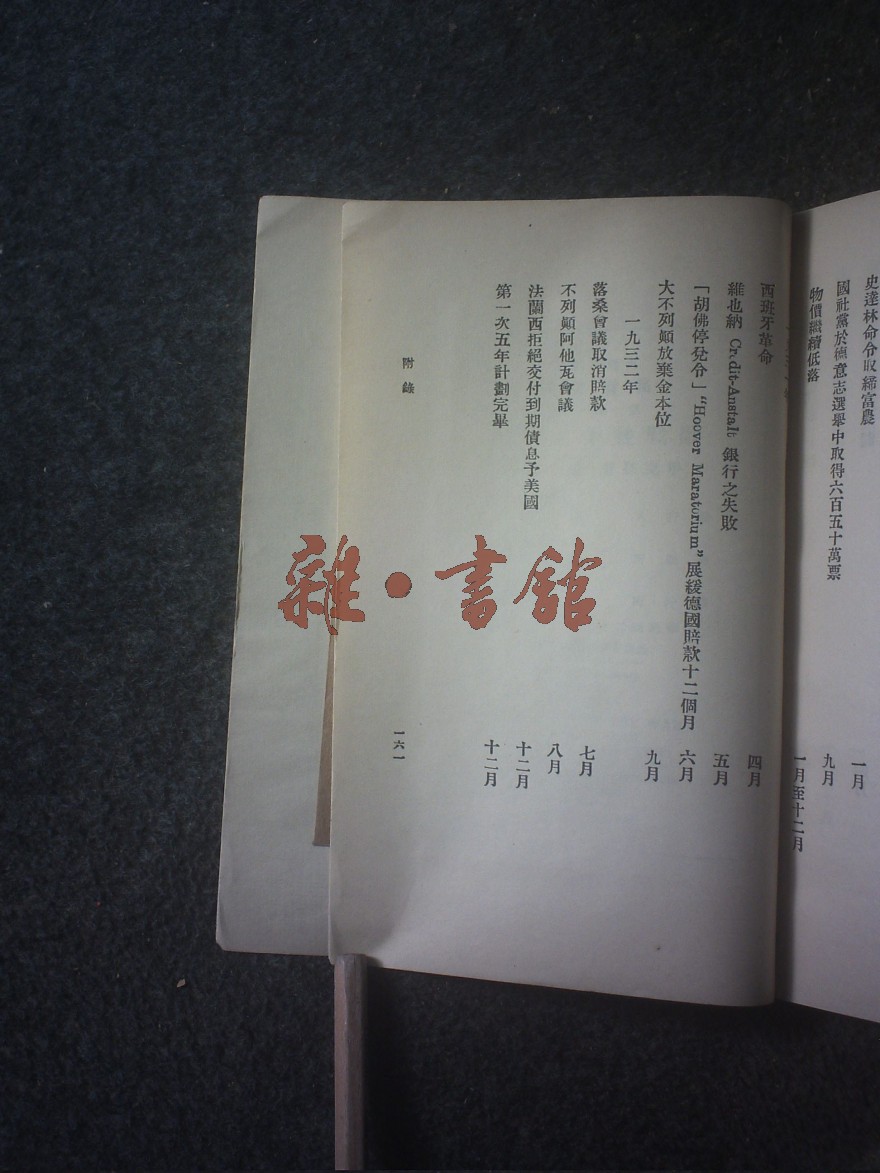 史達林命令取締富農 一月
國社黨於德意志選舉中取得六百五十萬票 九月
物價繼續低落 一月至十二月
西班牙革命 四月
維也納 Credit-Anstalt 銀行之失敗 五月
「胡佛停兌令」“Hoover Maratorium” 展緩德國賠款十二個月 六月
大不列顛放棄金本位 九月
一九三二年
落桑會議取消賠款 七月
不列顛阿他瓦會議 八月
法蘭西拒絕交付到期債息予美國 十二月
第一次五年計劃完畢 十二月
附錄 一六一
雜·書館